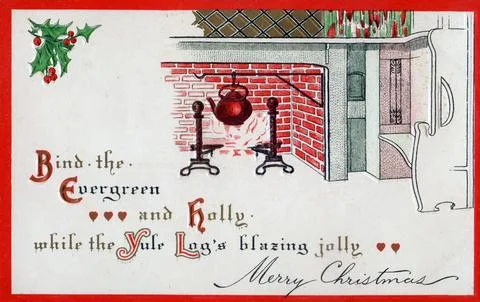 Bind · the ·
Evergreen
and Holly ·
while the Yule Log's blazing jolly
Merry Christmas